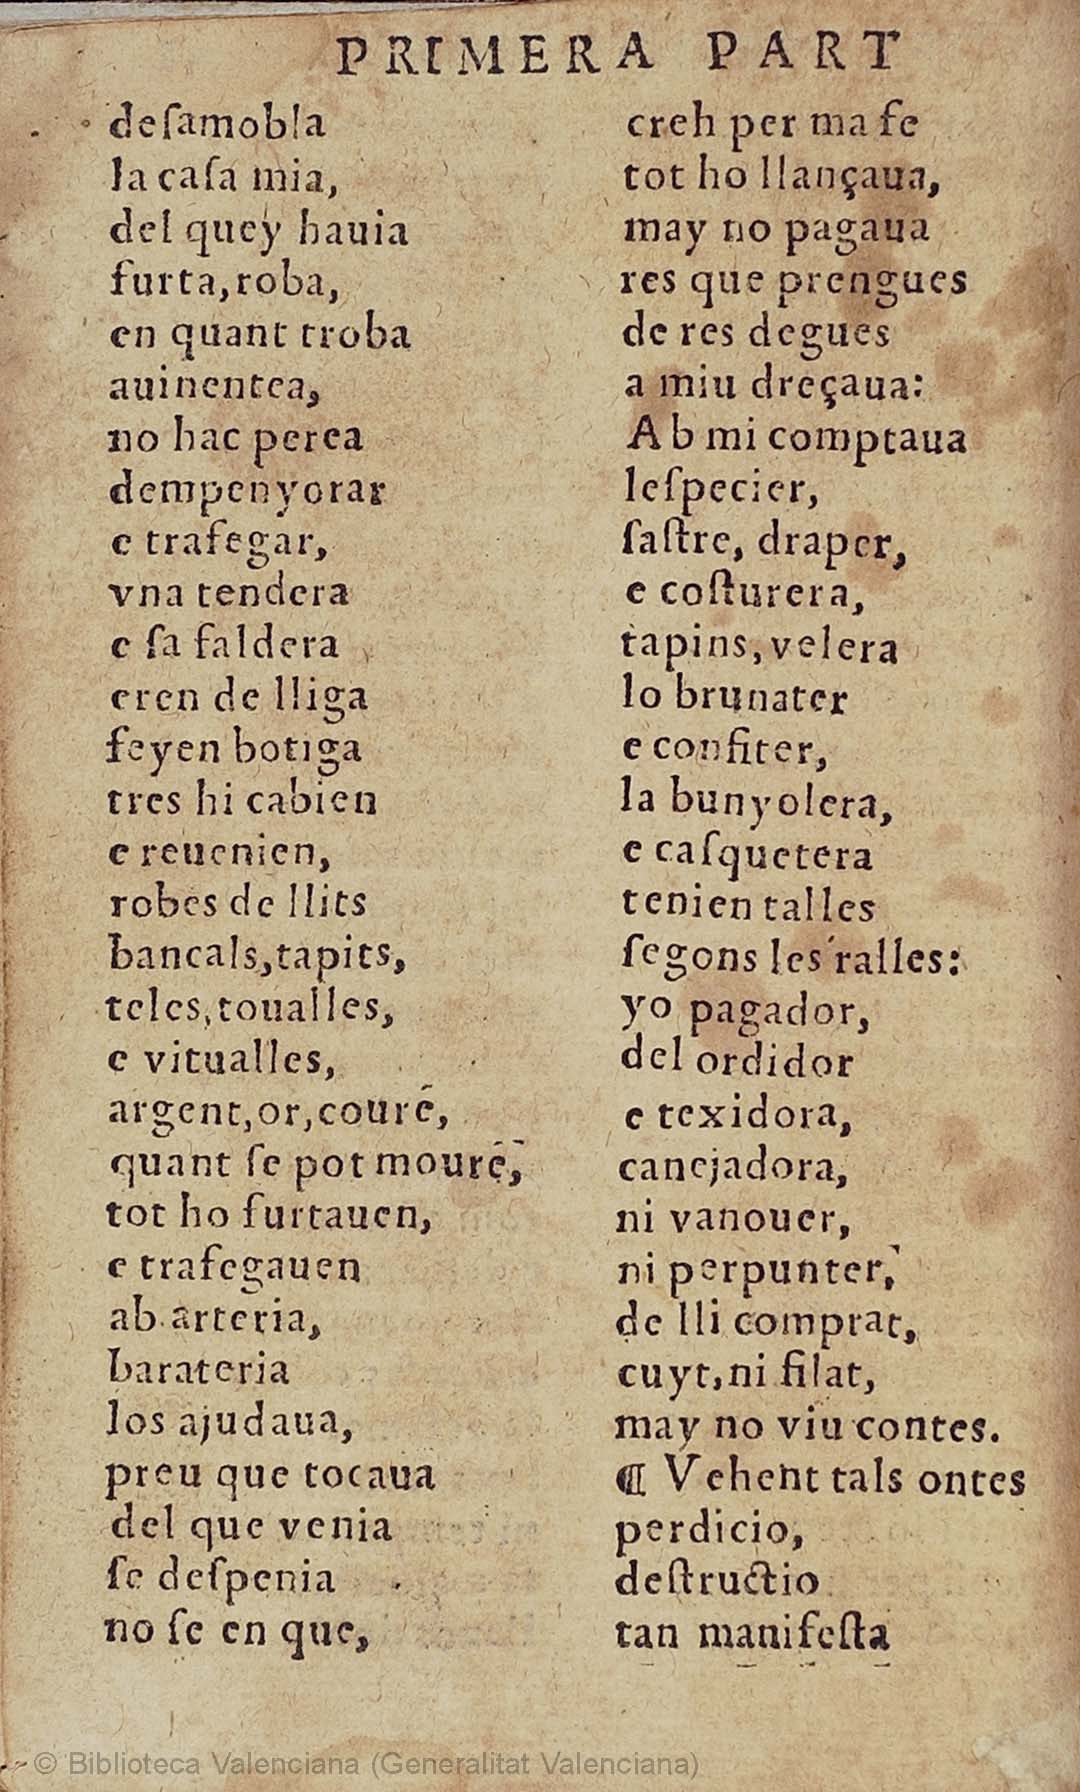 PRIMERA PART
deſamobla
la caſa mia,
del quey hauia
furta, roba,
en quant troba
auinentea,
no hac perea
dempenyorar
e trafegar,
vna tendera
e ſa faldera
eren de lliga
feyen botiga
tres hi cabien
e reuenien,
robes de llits
bancals, tapits,
teles, toualles,
e vitualles,
argent, or, courē,
quant ſe pot mourē,
tot ho furtauen,
e trafegauen
ab arteria,
barateria
los ajudaua,
preu que tocaua
del que venia
ſe deſpenia
no ſe en que,
creh per ma fe
tot ho llançaua,
may no pagaua
res que prengues
de res degues
a miu dreçaua:
Ab mi comptaua
leſpecier,
ſaſtre, draper,
e coſturera,
tapins, velera
lo brunater
e confiter,
la bunyolera,
e caſquetera
tenien talles
ſegons les ralles:
yo pagador,
del ordidor
e texidora,
canejadora,
ni vanouer,
ni perpunter,
de lli comprat,
cuyt, ni filat,
may no viu contes.
¶ Vehent tals ontes
perdicio,
deſtructio
tan manifeſta
© Biblioteca Valenciana (Generalitat Valenciana)